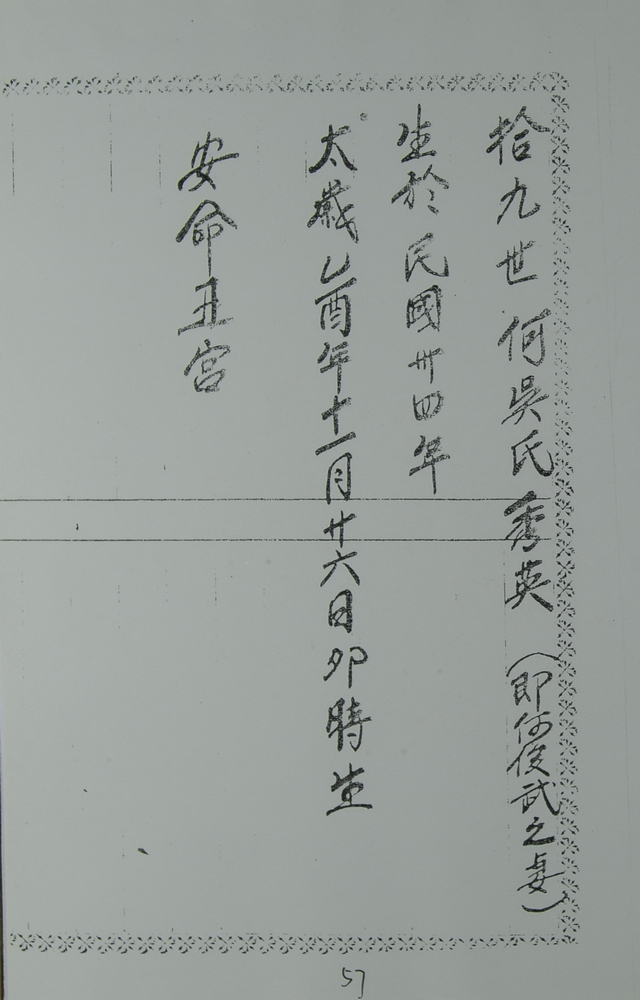 拾九世何吳氏秀英（即何俊武之妻）
生於民國卅四年
太歲乙酉年十一月廿六日卯時生
安命丑宮
57